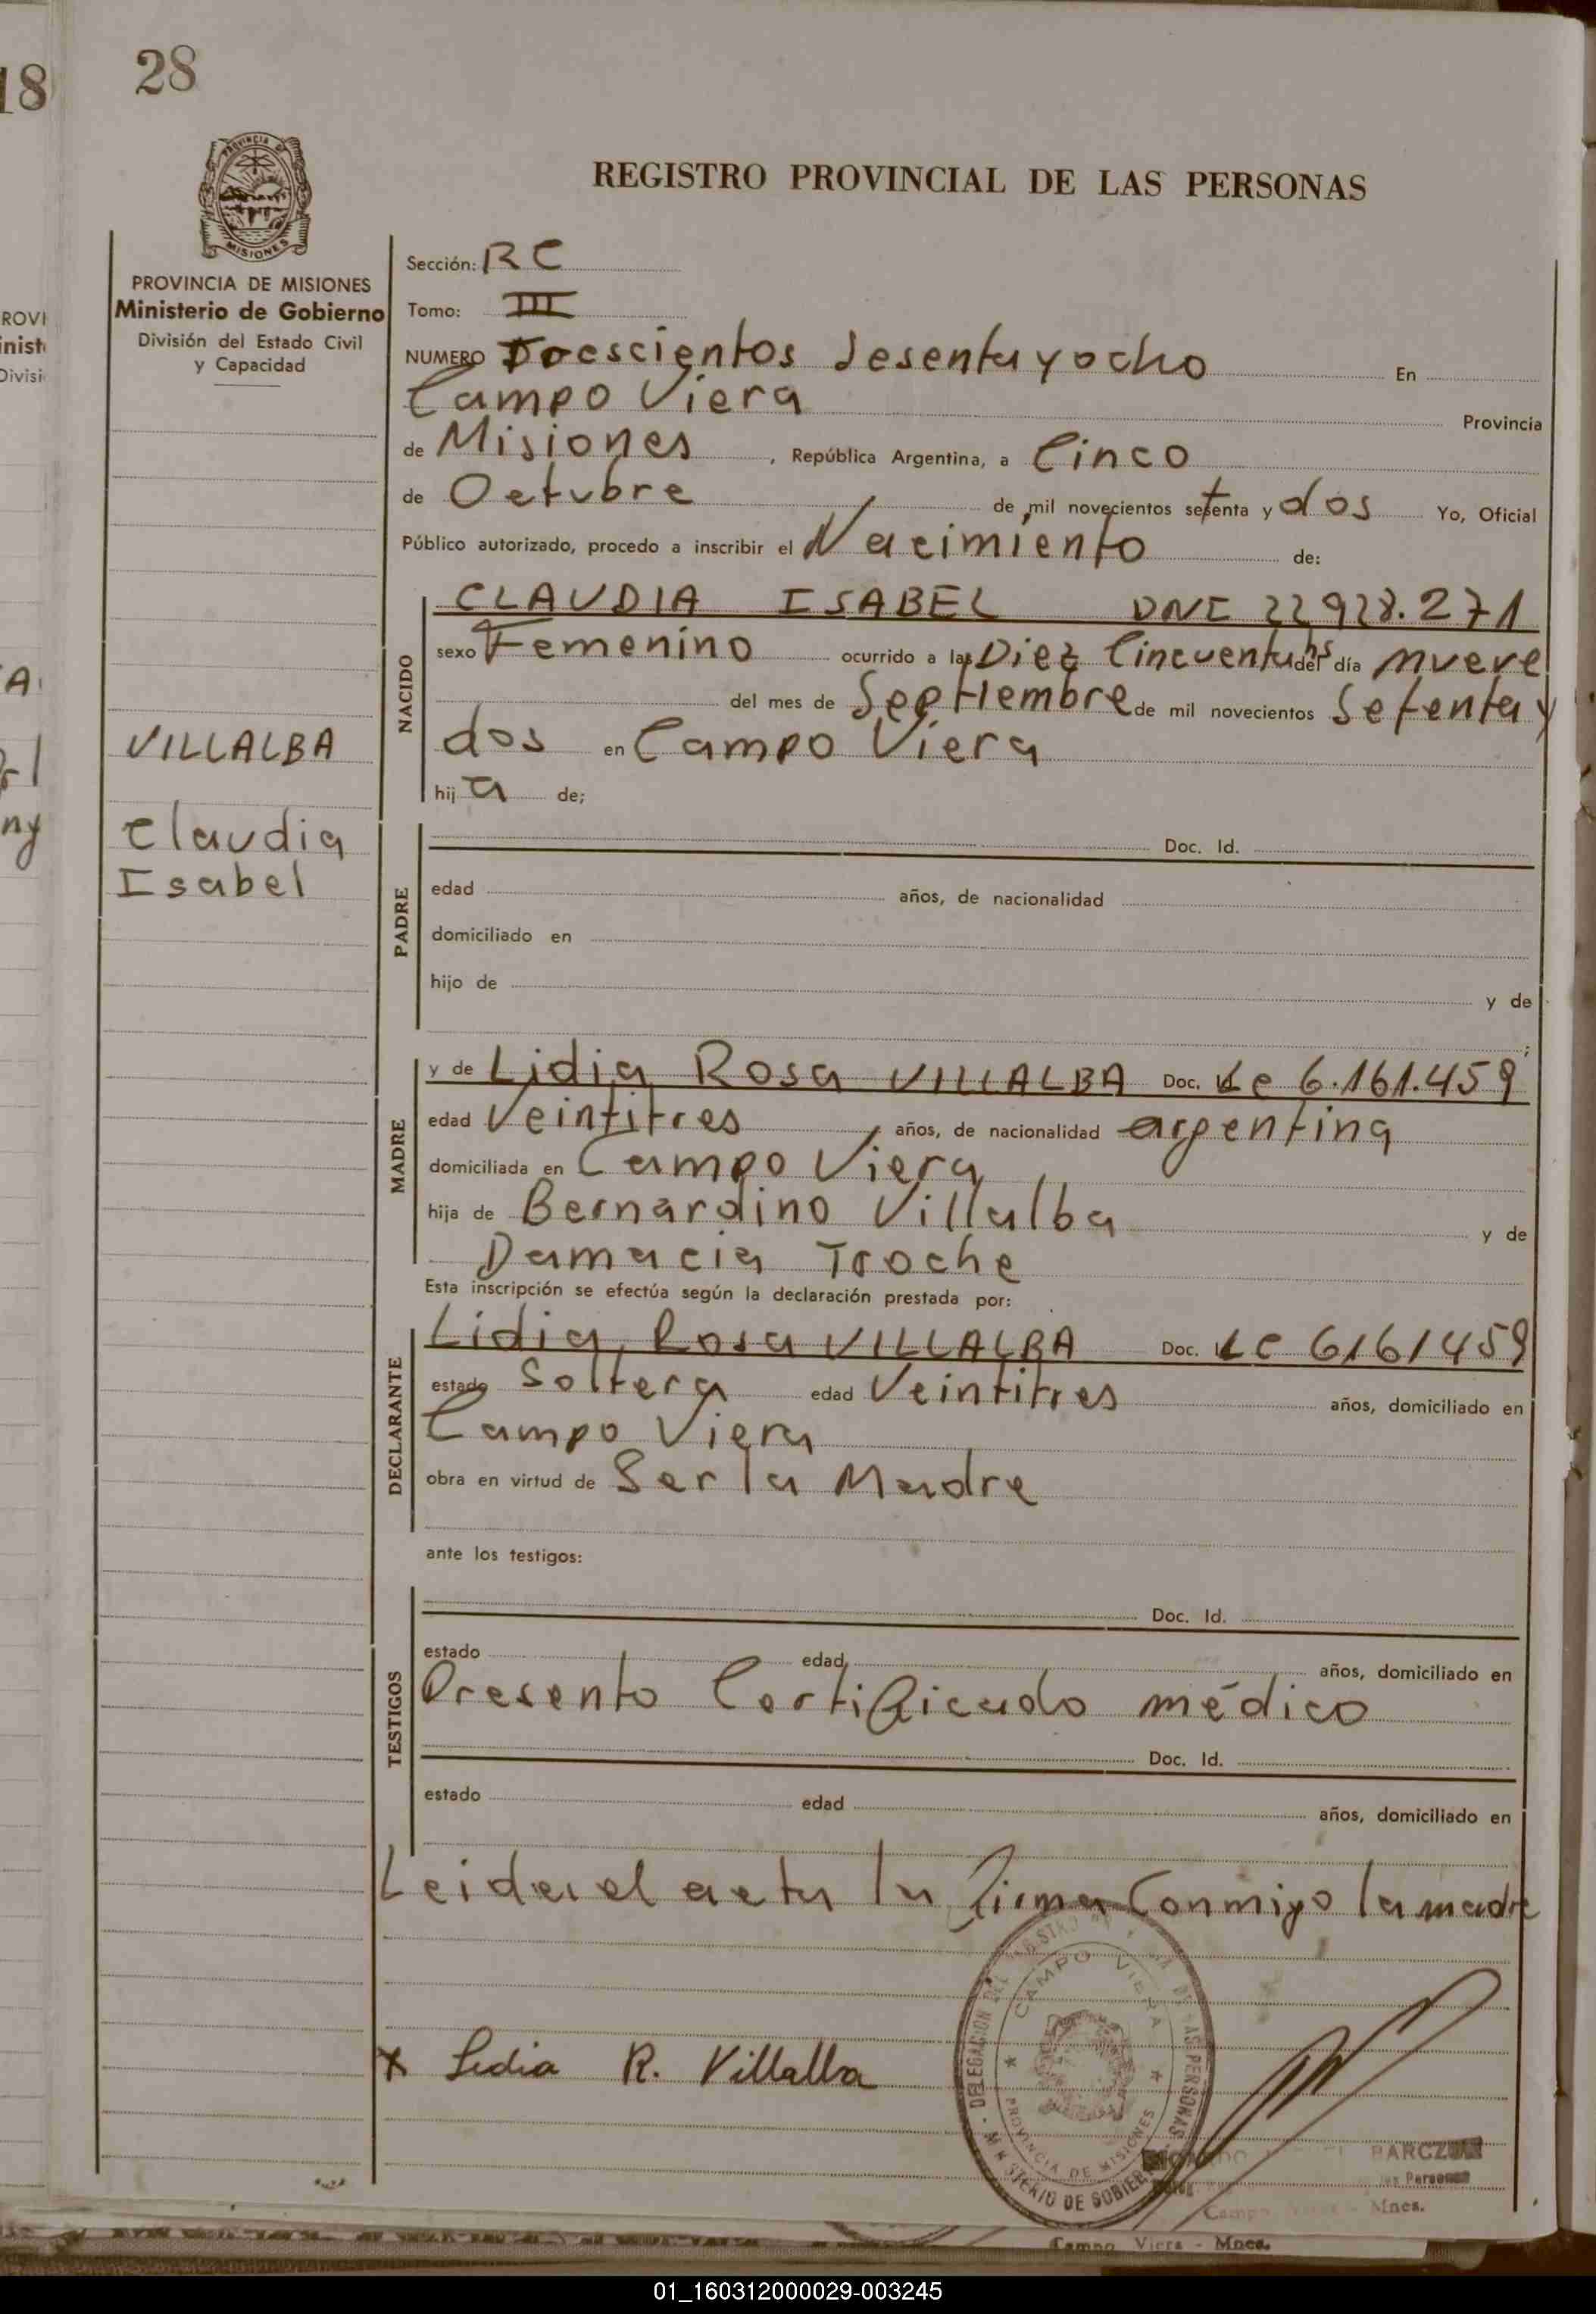 28
18
REGISTRO PROVINCIAL DE LAS PERSONAS
PROVINCIA DE MISIONES
Ministerio de Gobierno
División del Estado Civil
y Capacidad
VILLALBA
Claudia
Isabel
Sección: RC
Tomo: III
NUMERO Doescientos Sesenta y ocho En
Campo Viera Provincia
de Misiones, República Argentina, a Cinco
de Octubre de mil novecientos setenta y dos Yo, Oficial
Público autorizado, procedo a inscribir el Nacimiento de:
NACIDO
CLAUDIA ISABEL DNI 22928.271
sexo Femenino ocurrido a las Diez Cincuenta hs del día nueve
del mes de Septiembre de mil novecientos Setenta y
dos en Campo Viera
hij a de;
PADRE
Doc. Id.
edad años, de nacionalidad
domiciliado en
hijo de y de
MADRE
y de Lidia Rosa VILLALBA Doc. Lc 6.161.459
edad Veintitres años, de nacionalidad argentina
domiciliada en Campo Viera
hija de Bernardino Villalba y de
Damacia Troche
Esta inscripción se efectúa según la declaración prestada por:
DECLARANTE
Lidia Rosa VILLALBA Doc. LC 6161459
estado Soltera edad Veintitres años, domiciliado en
Campo Viera
obra en virtud de Ser la Madre
ante los testigos:
TESTIGOS
Doc. Id.
estado edad años, domiciliado en
Presento Certificado médico
Doc. Id.
estado edad años, domiciliado en
Leida el acta la firma Conmigo la madre
CAMPO VIERA
PROVINCIA DE MISIONES
x Lidia R. Villalba
Campo Viera - Mnes.
01_160312000029-003245